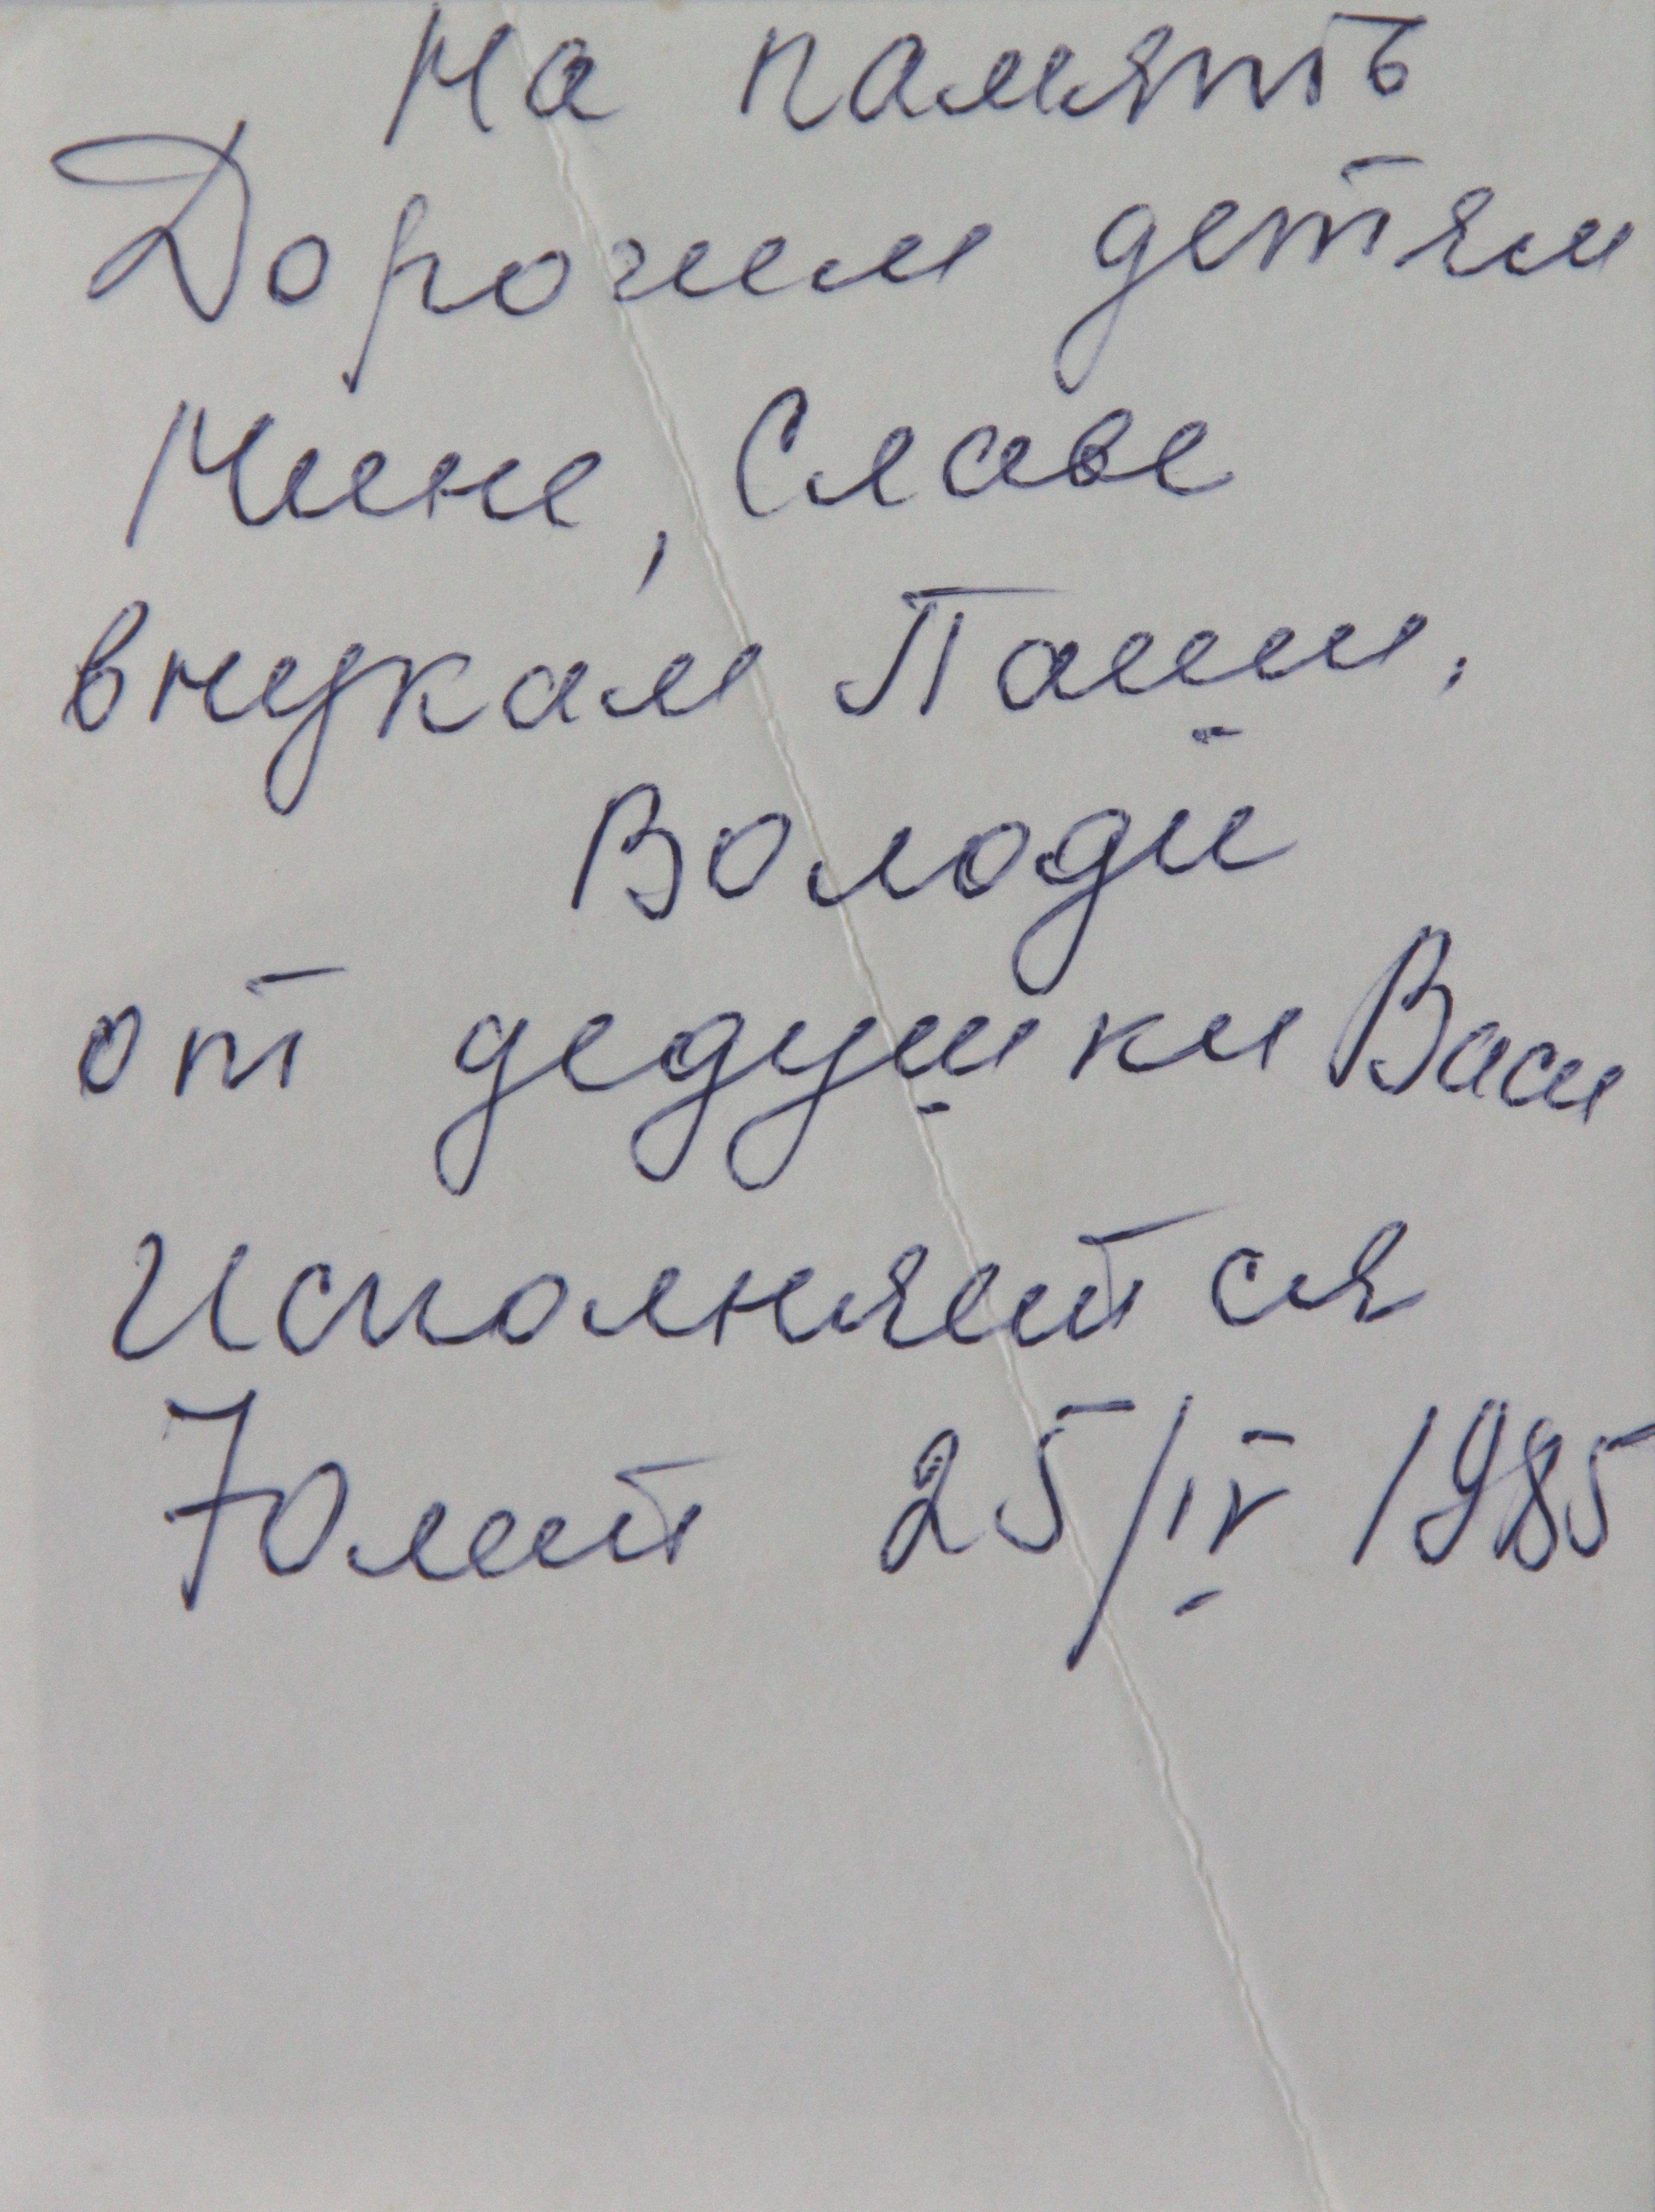 На память
Дорогим детям
Мине, Славе
внукам Паши,
Володи
от дедушки Васи
Исполняется
70 лет 25/IV 1985